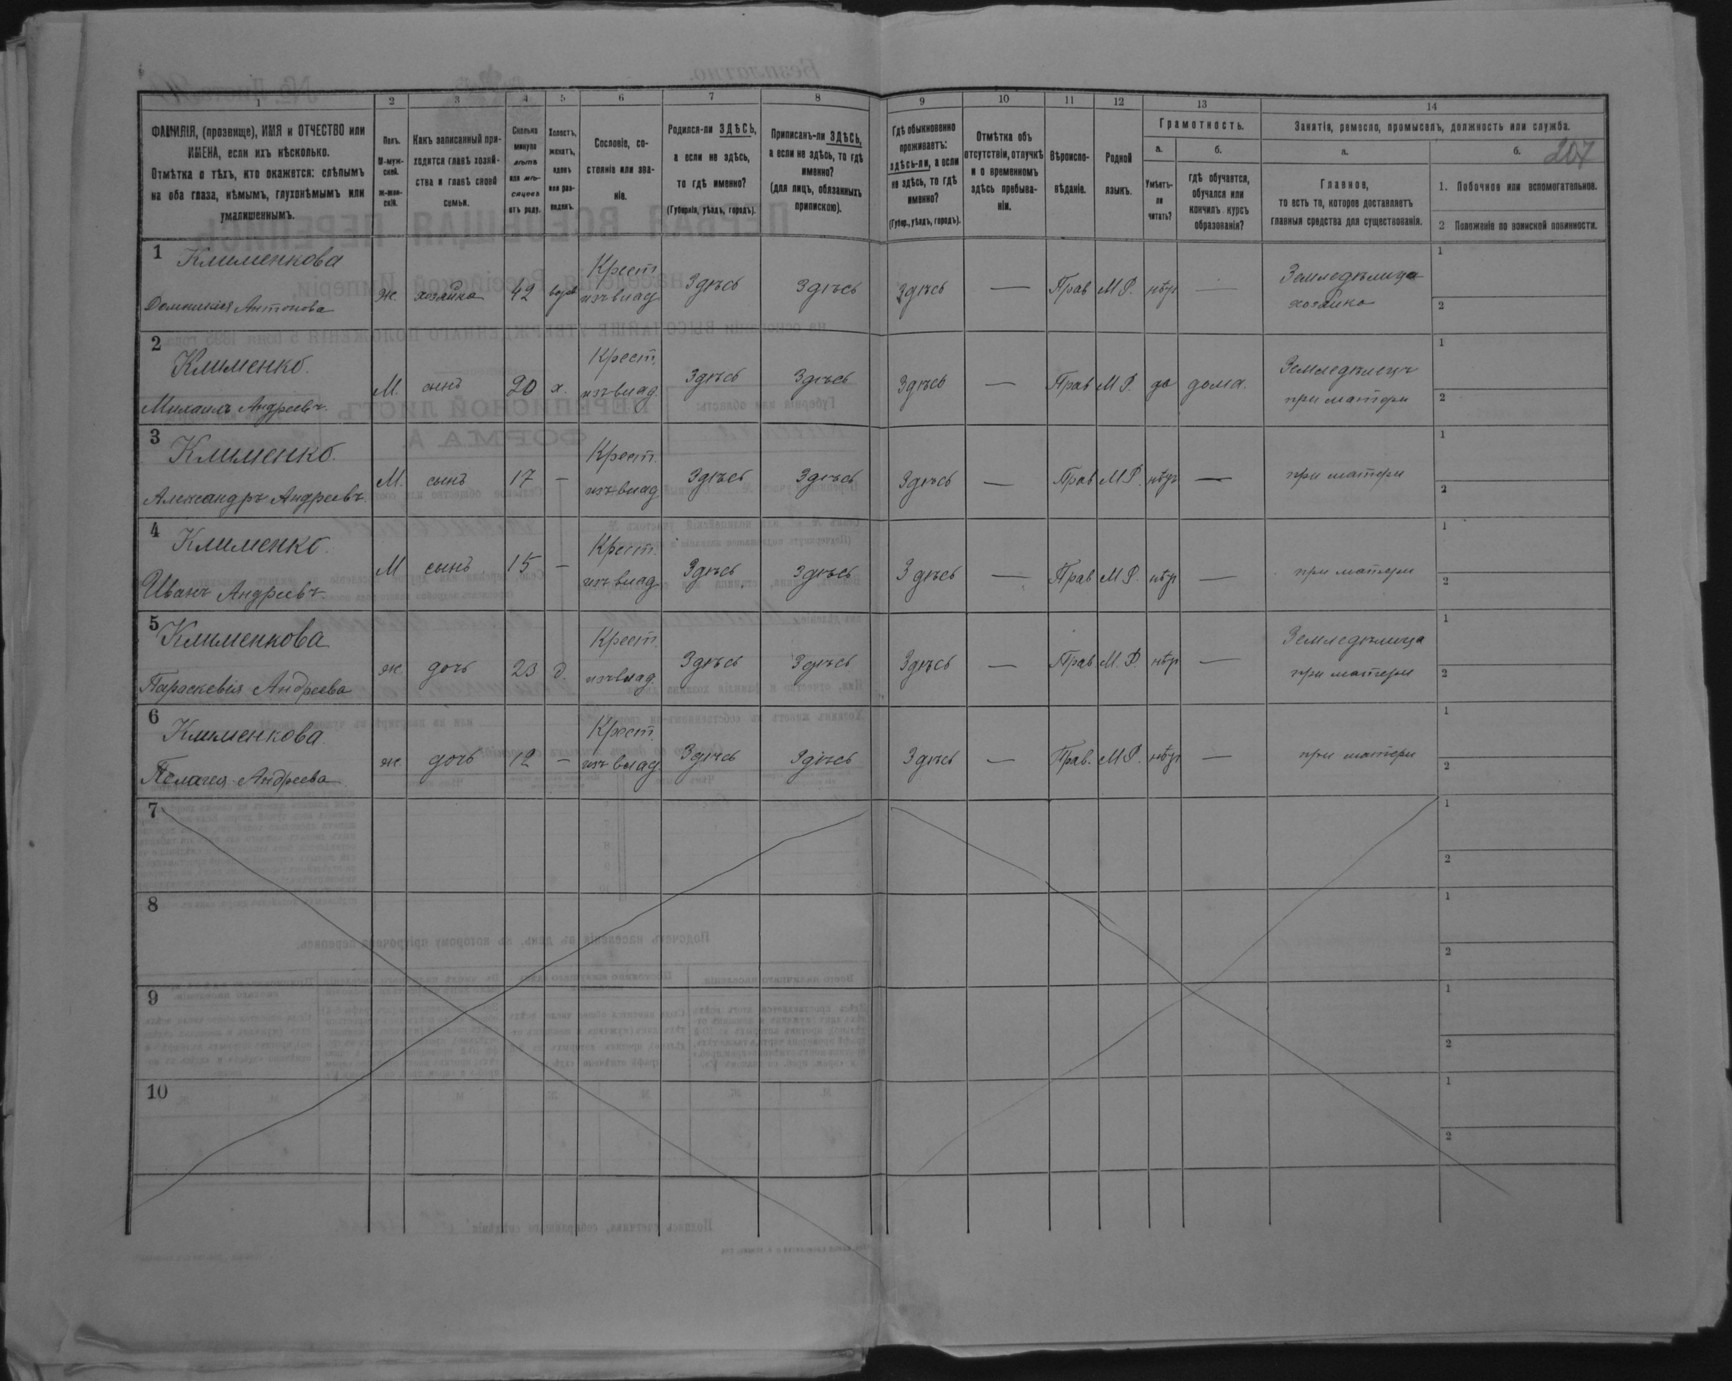 1 2 3 4 5 6 7 8 9 10 11 12 13 14
ФАМИЛІЯ, (прозвище), ИМЯ и ОТЧЕСТВО или
ИМЕНА, если ихъ нѣсколько.
Отмѣтка о тѣхъ, кто окажется: слѣпымъ
на оба глаза, нѣмымъ, глухонѣмымъ или
умалишеннымъ.
Полъ.
М-муж-
ской.
Ж-жен-
скій.
Какъ записанный при-
ходится главѣ хозяй-
ства и главѣ своей
семьи.
Сколько
минуло
лѣтъ
или мѣ-
сяцевъ
отъ роду.
Холостъ,
женатъ,
вдовъ
или раз-
веденъ.
Сословіе, со-
стояніе или зва-
ніе.
Родился-ли ЗДѢСЬ,
а если не здѣсь,
то гдѣ именно?
(Губернія, уѣздъ, городъ).
Приписанъ-ли ЗДѢСЬ,
а если не здѣсь, то гдѣ
именно?
(для лицъ, обязанныхъ
припискою).
Гдѣ обыкновенно
проживаетъ:
здѣсь-ли, а если
не здѣсь, то гдѣ
именно?
(Губер., уѣздъ, городъ).
Отмѣтка объ
отсутствіи, отлучкѣ
и о временномъ
здѣсь пребыва-
ніи.
Вѣроиспо-
вѣданіе.
Родной
языкъ.
Грамотность.
а.
Умѣетъ-
ли
читать?
б.
гдѣ обучается,
обучался или
кончилъ курсъ
образованія?
Занятія, ремесло, промыселъ, должность или служба.
а.
Главное,
то есть то, которое доставляетъ
главныя средства для существованія.
б.
207
1. Побочное или вспомогательное.
2 Положеніе по воинской повинности.
1 Клименкова Крест. Земледѣлица 1
Антонова ж хозяйка 42 вдов изъ влад Здѣсь Здѣсь Здѣсь — Прав М.Р. нѣт — хозяйка 2
2 Клименко. Крест. Земледѣлецъ 1
Михаилъ Андреевъ М. сынъ 20 х. изъ влад Здѣсь Здѣсь Здѣсь — Прав М.Р. да дома. при матери 2
3 Клименко Крест. 1
Александръ Андреевъ М. сынъ 17 — изъ влад Здѣсь Здѣсь Здѣсь — Прав М.Р. нѣт — при матери 2
4 Клименко. Крест. 1
Иванъ Андреевъ М сынъ 15 — изъ влад Здѣсь Здѣсь Здѣсь — Прав М.Р. нѣт — при матери 2
5 Клименкова Крест. Земледѣлица 1
Параскевія Андреева ж. дочь 23 д. изъ влад. Здѣсь Здѣсь Здѣсь — Прав М.Р. нѣт — при матери 2
6 Клименкова. Крест. 1
Пелагея Андреева ж. дочь 12 — изъ влад Здѣсь Здѣсь Здѣсь — Прав. М.Р. нѣт — при матери 2
7 1
2
8 1
2
9 1
2
10 1
2